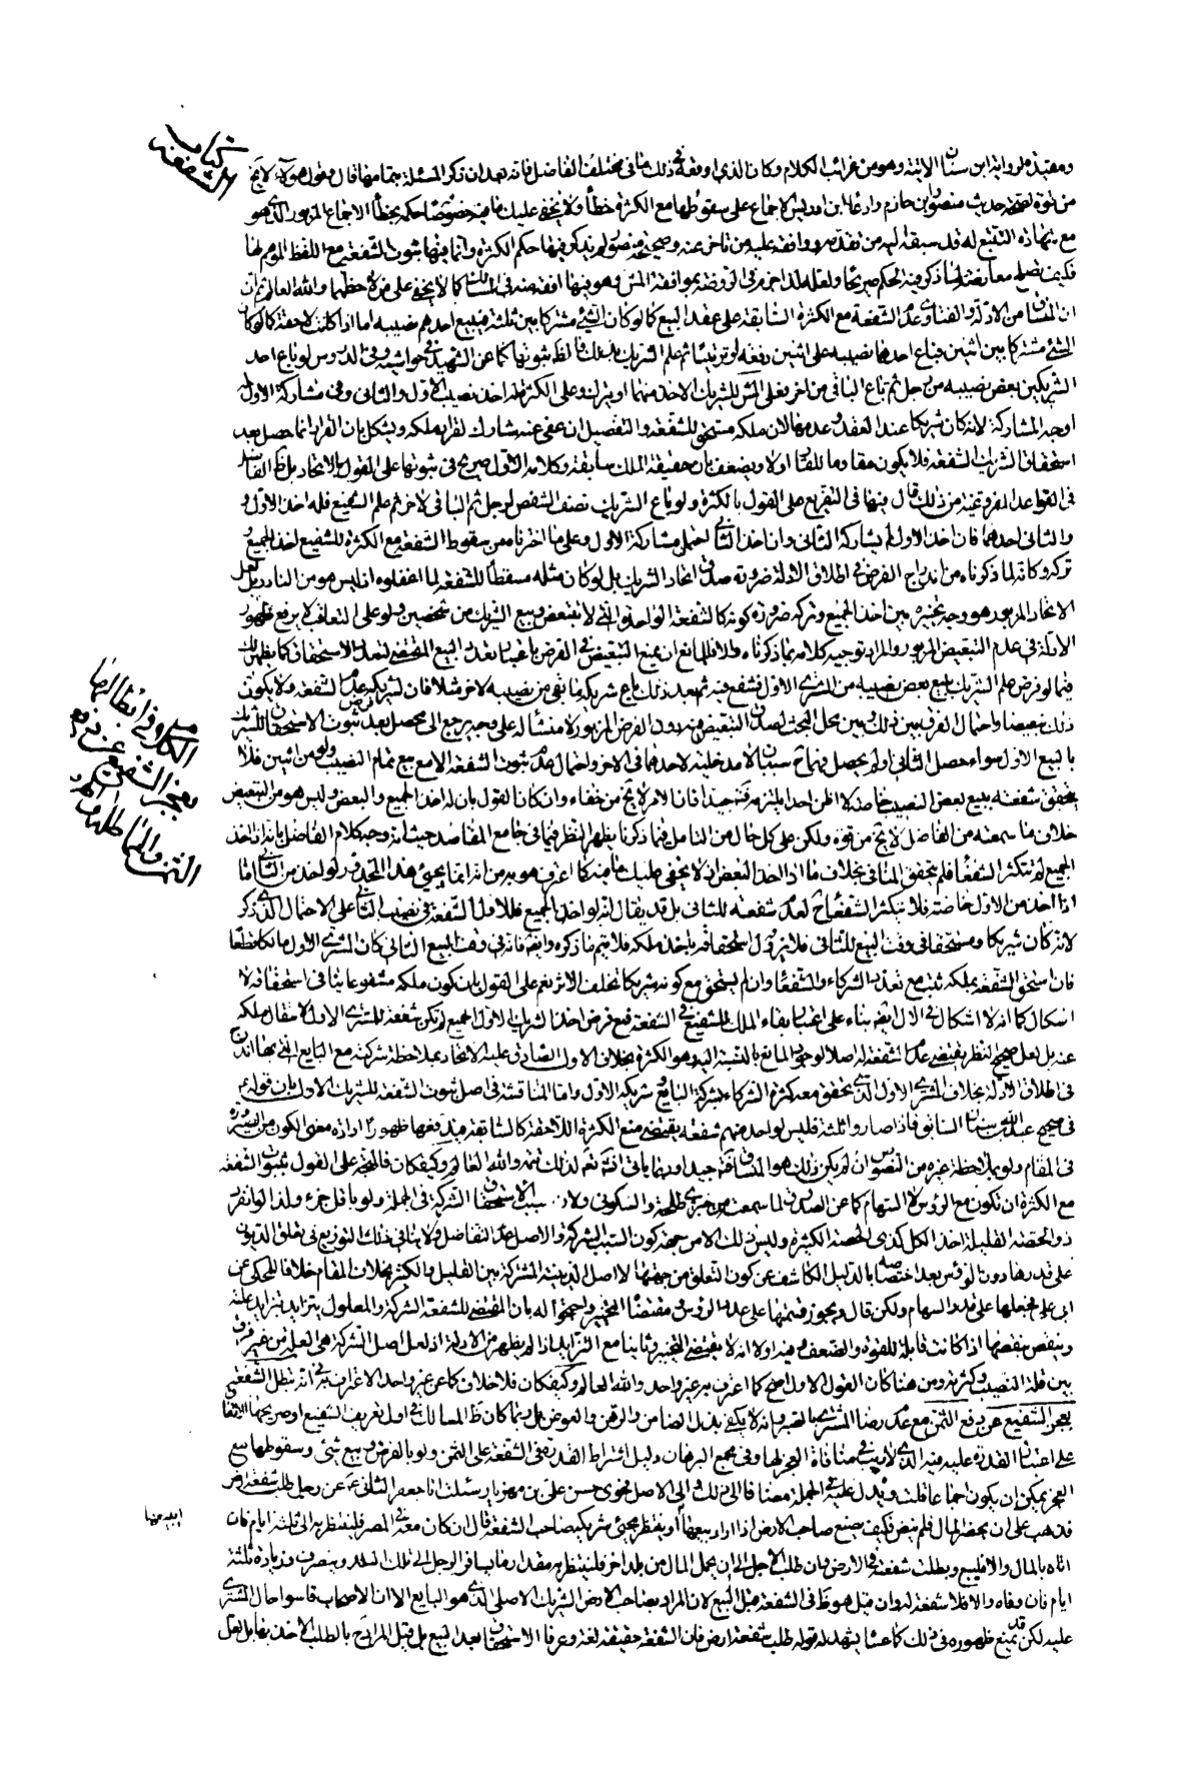 كتاب الشفعة
ومعتبرة رواية ابن سنان الاتية وهو من غرائب الكلام وكان الذي اوقعه في ذلك ما في مختلف الفاضل فانه بعد ان ذكر المسئلة بتمامها قال وقول هؤلاء لا يخ
من قوة لصحة حديث منصور بن حازم وادعاء ابن ادريس الاجماع على سقوطها مع الكثرة خطأ ولا يخفى عليك ما فيه خصوصا حكمه بخطأ الاجماع المزبور الذي هو
مع شهادة التتبع له قد سبقه اليه من تقدمه ووافقه عليه من تاخر عنه وصحيحة منصور لم يذكر فيها حكم الكثرة وانما فيها ثبوت الشفعة مع اللفظ الموهم لها
فكيف تصلح معارضة لما ذكر فيه الحكم صريحا ولعله لذا جزم في الروضة بموافقة المش فهو فيها افقه منه في المسالك كما لا يخفى على من لاحظهما والله العالم ثم ان
ان المنساق من الادلة والفتاوى عدم الشفعة مع الكثرة السابقة على عقد البيع كما لو كان الشيء مشتركا بين ثلثة فيبيع احدهم نصيبه اما اذا كانت لاحقة كما لو كان
الشيء مشتركا بين اثنين فباع احدهما نصيبه على اثنين دفعة او ترتيبا ثم علم الشريك بذلك فالظ ثبوتها كما عن الشهيد في حواشيه وفي الدروس لو باع احد
الشريكين بعض نصيبه من رجل ثم باع الباقي من اخر فعلى المش للشريك الاخذ منهما او يترك وعلى الكثرة له اخذ نصيب الاول والثاني وفي مشاركة الاول له
اوجه المشاركة لانه كان شريكا عند العقد وعدمها لان ملكه مستحق للشفعة والتفصيل ان عفى عنه شارك لقرار ملكه ويشكل بان القرار انما حصل بعد
استحقاق الشريك الشفعة فلا يكون مقاوما للقار اولا ويضعف بان حقيقة الملك سابقة وكلامه الاول صريح في ثبوتها على القول بالاتحاد بل ظ الفاضل
في القواعد المفروغية من ذلك قال فيها في التفريع على القول بالكثرة ولو باع الشريك نصف الشقص لرجل ثم الباقي لاخر ثم علم الشفيع فله اخذ الاول و
والثاني احدهما فان اخذ الاول لم يشاركه الثاني وان اخذ الثاني احتمل مشاركة الاول وعلى ما اخترناه من سقوط الشفعة مع الكثرة للشفيع اخذ الجميع و
تركه وكانه لما ذكرناه من اندراج الفرض في اطلاق الادلة ضرورة صدق اتحاد الشريك بل لو كان مثله مسقطا للشفعة لما اغفلوه اذ ليس هو من النادر بل لعل
الاتحاد المزبور هو وجه تخييره بين اخذ الجميع وتركه ضرورة كونه كالشفعة الواحدة التي لا تتبعض وبيع الشريك من شخصين ولو على التعاقب لا يرفع ظهور
الادلة في عدم التبعيض المزبور والمراد توجيه كلامه بما ذكرناه والا فللمانع ان يمنع التبعيض في الفرض باعتبار تعدد البيع المقتضي لتعدد الاستحقاق كما يظهر لك
فيما لو فرض علم الشريك ببيع بعض نصيبه من المشتري الاول فشفع فيه ثم بعد ذلك باع شريكه ما بقي من نصيبه لاخر مثلا فان لشريكه عدم الشفعة ولا يكون
ذلك تبعيضا واحتمال الفرق بين ذلك وبين محل البحث لصدق التبعيض فيه دون الفرض المزبور لا منشأ له على وجه يرجع الى محصل بعد فرض ثبوت الاستحقاق للشريك
بالبيع الاول سواء حصل الثاني او لم يحصل فهما ح سببان لا مدخلية لاحدهما في الاخر واحتمال عدم ثبوت الشفعة الا مع بيع تمام النصيب ولو من اثنين فلا
يتحقق شفعة ببيع بعض النصيب خاصة لا اظن احدا يلتزمه فتجيدا فان الامر لا يخ من خفاء وان كان القول بان له اخذ الجميع والبعض وليس هو من التبعيض
خلاف ما سمعته من الفاضل لا يخ من قوة ولكن على كل حال من التامل فيما ذكرنا يظهر النظر فيما في جامع المقاصد حيث انه وجه كلام الفاضل بانه ان اخذ
الجميع لم تتكثر الشفعاء فلم يتحقق المنافي بخلاف ما اذا اخذ البعض اذ لا يخفى عليك ما فيه كما اعترف هو به من انه انما يجيء هذا المحذور لو اخذ من الثاني اما
اذا اخذ من الاول خاصة فلا تتكثر الشفعاء ح لعدم شفعة للثاني بل قد يقال انه لو اخذ الجميع فللاول الشفعة في نصيب الثاني على الاحتمال الذي ذكر
لانه كان شريكا ومستحقا في وقت البيع للثاني فلا يزول استحقاقه باخذ ملكه فلا يتم ما ذكره وايضه فانه في وقت البيع الثاني كان المشتري الاول مالكا قطعا
فان استحق الشفعة بملكه ثبت مع تعدد الشركاء والشفعاء وان لم يستحق مع كونه شريكا تخلف الاثر نعم على القول بان كون ملكه مشفوعا ينافي استحقاقه لا
اشكال كما انه لا اشكال في الاول ايضه بناء على اعتبار بقاء الملك للشفيع في الشفعة فمع فرض اخذ الشريك الاول الجميع لم تكن شفعة للمشتري الاول لانتقال ملكه
عنه بل لعل صحيح النظر يقتضي عدم الشفعة له اصلا لوجود المانع بالنسبة اليه وهو الكثرة بخلاف الاول الصادق عليه الاتحاد بملاحظة شركته مع البايع التي بها اندرج
في اطلاق الادلة بخلاف المشتري الاول الذي يتحقق معه كثرة الشركاء بشركة البايع وشريكه الاول واما المناقشة في اصل ثبوت الشفعة للشريك الاول بان قوله ع
في صحيح عبد الله بن سنان السابق فاذا صاروا ثلثة فليس لواحد منهم شفعة يقتضي منع الكثرة اللاحقة كالسابقة فيدفعها ظهور ارادة معنى الكون من الصيرورة
في المقام ولو بملاحظة غيره من النصوص ان لم يكن ذلك هو المنساق جيدا وربما ياتي انشاء الله تتمة لذلك والله العالم وكيف كان فالمتجه على القول بثبوت الشفعة
مع الكثرة ان تكون مع الرؤس لا السهام كما عن الصدوق لما سمعت من خبري طلحة والسكوني ولان سبب الاستحقاق الشركة في الجملة ولو باقل جزء ولذا لو انفرد
ذو الحصة القليلة اخذ الكل كذي الحصة الكثيرة وليس ذلك الا من جهة كون السبب الشركة والاصل عدم التفاضل ولا ينافي ذلك التوزيع في تعلق الديون
على قدرها دون الرؤس بعد اختصاصه بالدليل الكاشف عن كون التعلق من جهتها لا اصل الدينية المشتركة بين القليل والكثير بخلاف المقام خلافا للمحكي عن
ابي علي فجعلها على قدر السهام ولكن قال ويجوز قسمتها على عدد الرؤس ومقتضاه التخيير واحتج له بان المقتضي للشفعة الشركة والمعلول يتزايد بتزايد علته
وينقص بنقصها اذا كانت قابلة للقوة والضعف وفيه اولا انه لا يقتضي التخيير وثانيا منع التزايد اذ لم يظهر من الادلة اذ لعل اصل الشركة هي العلة من غير فرق
بين قلة النصيب وكثرته ومن هنا كان القول الاول اصح كما اعترف به غير واحد والله العالم وكيف كان فلا خلاف كما عن غير واحد الاعتراف به في انه تبطل الشفعة
بعجز الشفيع عن دفع الثمن مع عدم رضا المشتري بالصبر وانه لا يكفي بذل الضامن والرهن والعوض بل ربما كان ظ المسالك في اول تعريف الشفيع او صريحها الاتفاق
على اعتبار القدرة عليه فيه الذي لا ريب في منافاة العجز لها وفي مجمع البرهان دليل اشتراط القدرة في الشفعة على الثمن ولو بالقرض وبيع شيء وسقوطها مع
العجز يمكن ان يكون اجماعا قلت ويدل عليه في الجملة مضافا الى ذلك والى الاصل فحوى حسن علي بن مهزيار سئلت ابا جعفر الثاني ع عن رجل طلب شفعة ارض
فذهب على ان يحضر المال فلم ينض فكيف يصنع صاحب الارض اذا اراد بيعها أيبيعها او ينتظر مجيء شريكه صاحب الشفعة قال ان كان معه في المصر فلينتظر به الى ثلثة ايام فان
اتاه بالمال والا فليبع وبطلت شفعته في الارض وان طلب الاجل الى ان يحمل المال من بلد اخر فلينتظر به مقدار ما يسافر الرجل الى تلك البلدة وينصرف وزيادة ثلثة
ايام فان وفاه والا فلا شفعة له وان قيل هو ظ في الشفعة قبل البيع لان المراد بصاحب الارض الشريك الاصلي الذي هو البايع الا ان الاصحاب قاسوا حال المشتري
عليه لكن قد يمنع ظهوره في ذلك كما عساه يشهد له قوله طلب شفعة ارض فان الشفعة حقيقة لغة وعرفا الاستحقاق بعد البيع بل قيل المراد ح بالطلب الاخذ بقابل نقل
الكلام في ابطالها بعجز الشفيع عن دفع الثمن والمماطلة